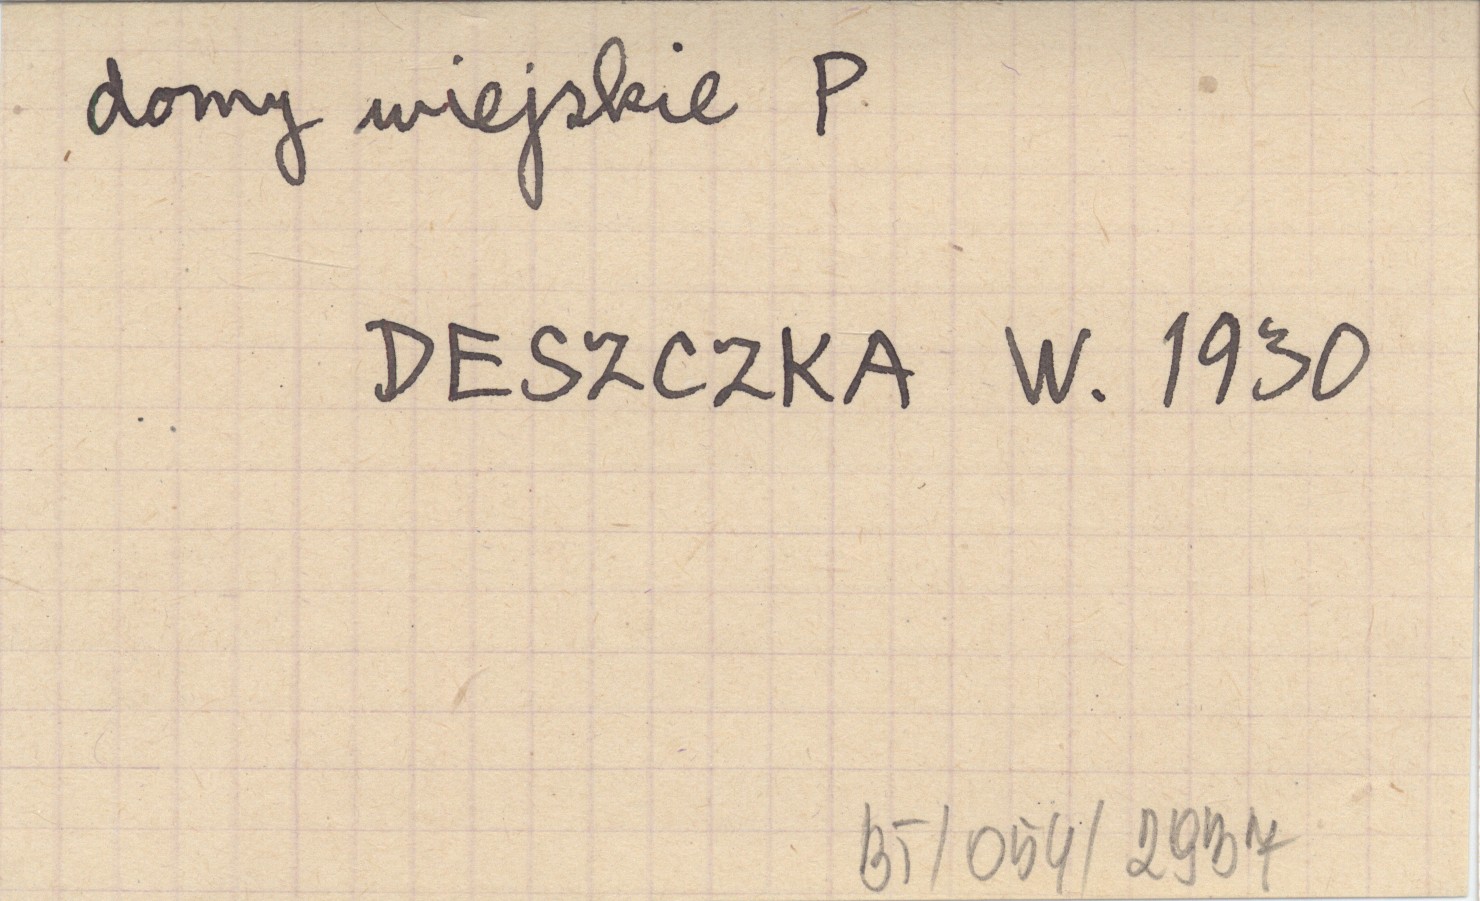 domy wiejskie P.
DESZCZKA W. 1930
BT/054/2937